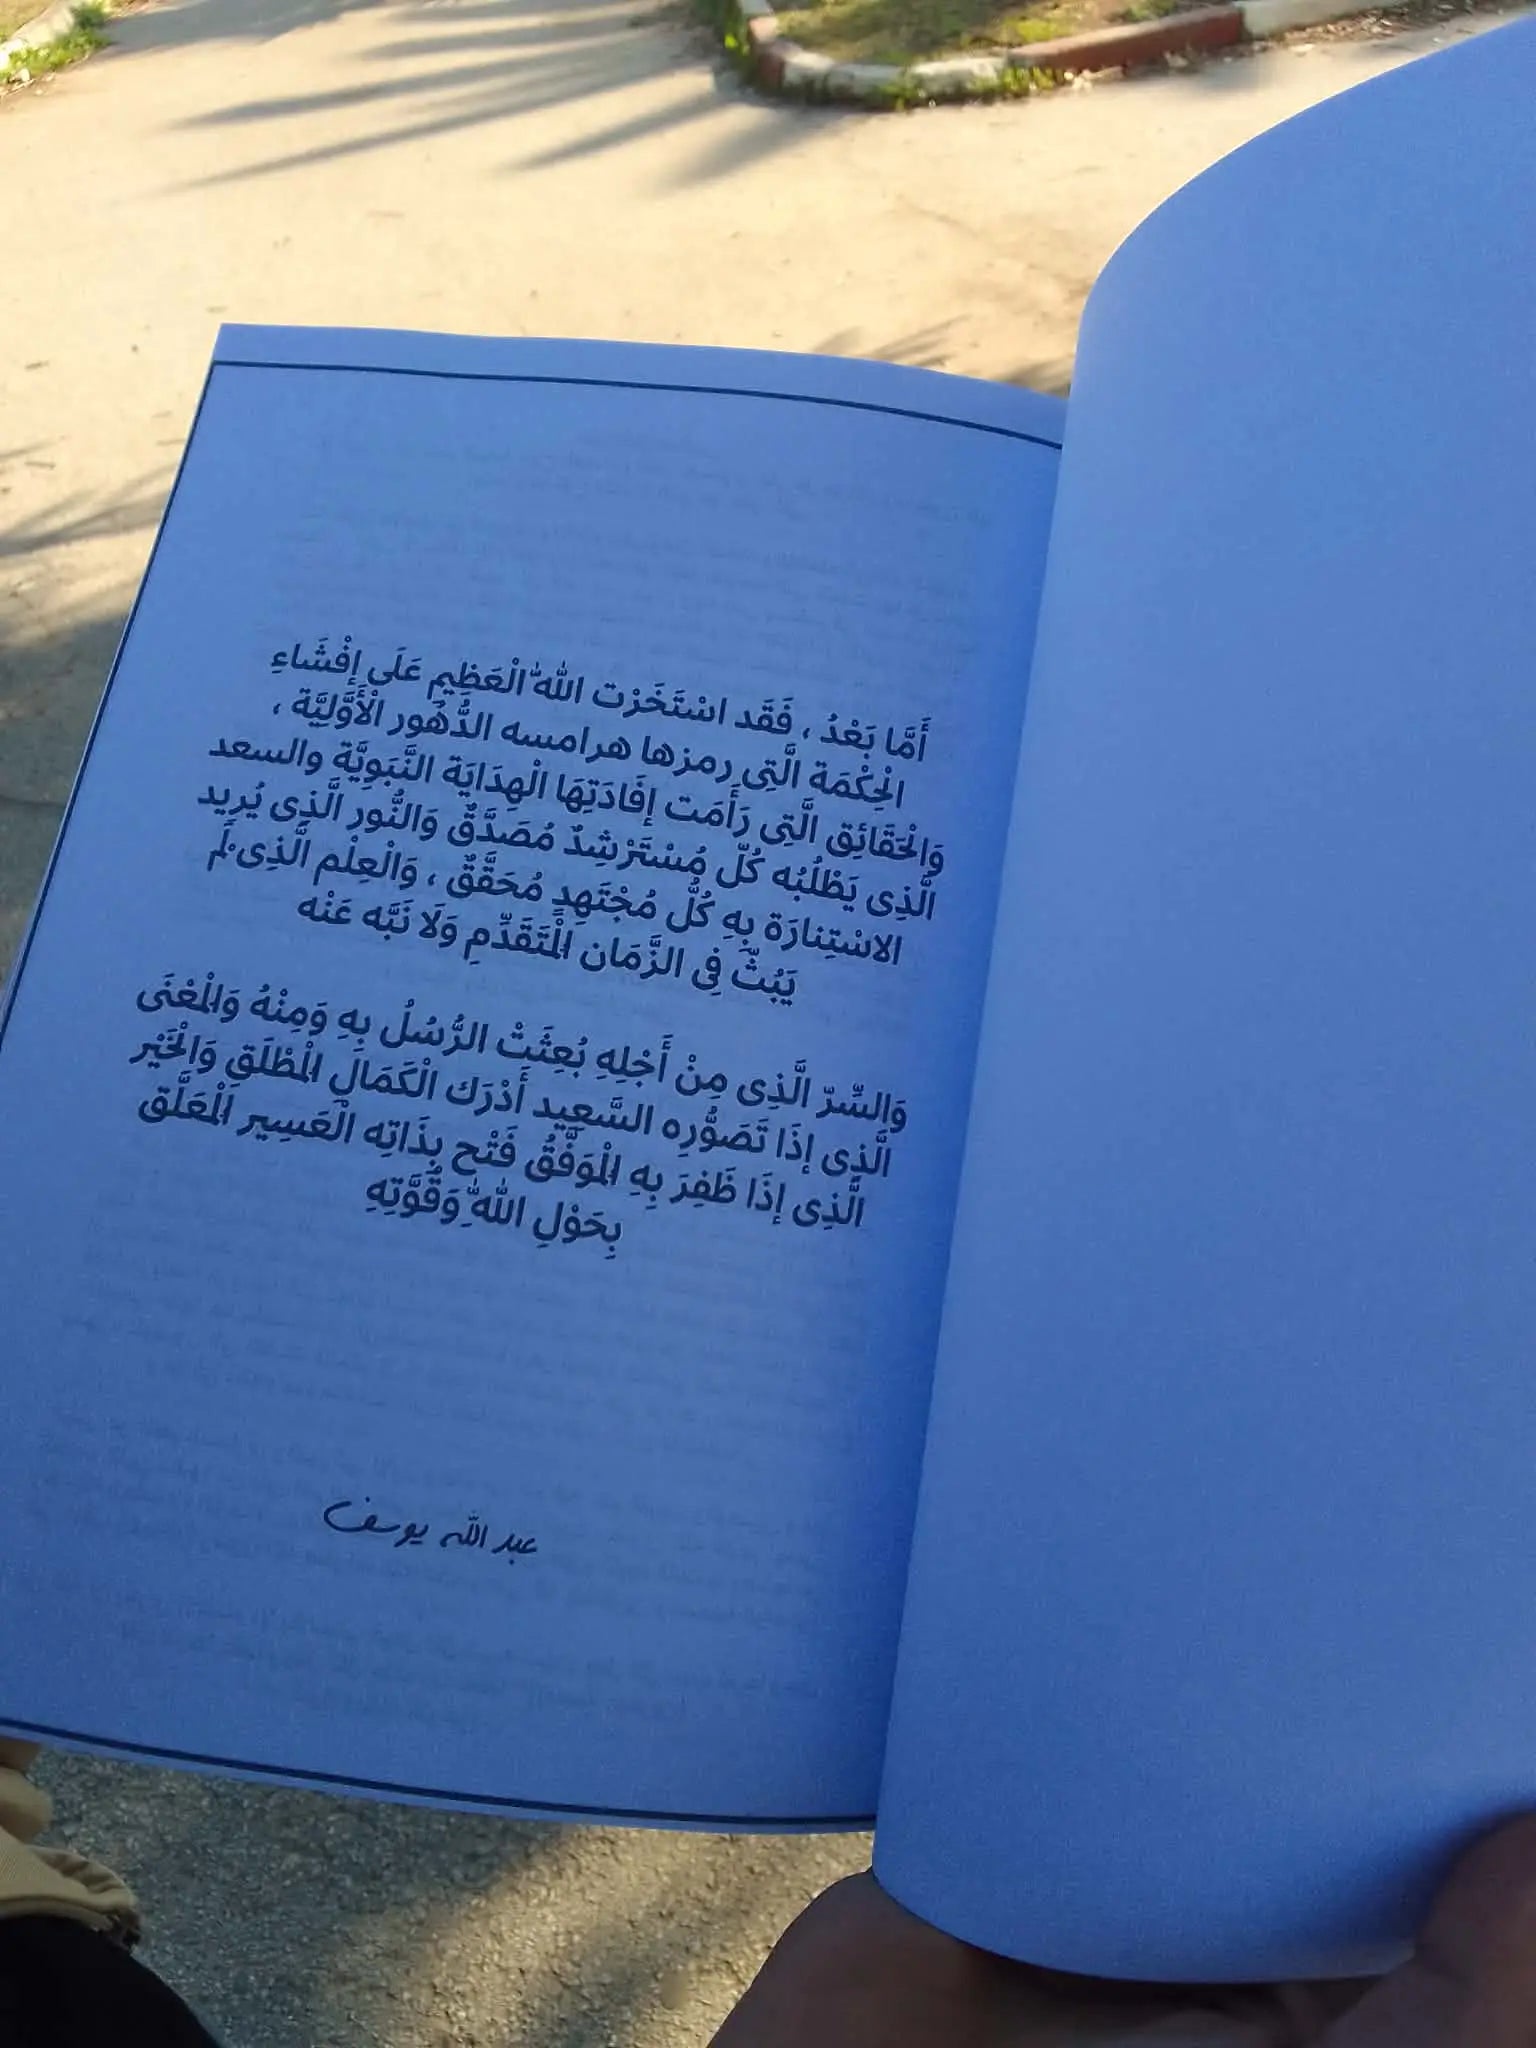 أَمَّا بَعْدُ ، فَقَد اسْتَخَرْت اللهَّ الْعَظِيم عَلَى إفْشَاءِ
الْحِكْمَة الَّتِى رمزها هرامسه الدُّهُور الْأَوَّلِيَّة ،
وَالْحَقَائِق الَّتِى رَأَمَت إفَادَتِهَا الْهِدَايَة النَّبَوِيَّة والسعد
الَّذِى يَظْلُبُه كُلّ مُسْتَرْشِدٌ مُصَدَّقٌ وَالنُّور الَّذِى يُرِيد
الاسْتِنارَة بِهِ كُلُّ مُجْتَهِدِ مُحَقَّقٌ ، وَالْعِلْم الَّذِى لَم
يَبُثّ فِى الزَّمَان الْمُتَقَدِّمِ وَلَا نَبَّه عَنْه
وَالسِّرّ الَّذِى مِنْ أَجْلِهِ بُعِثَتْ الرُّسُلُ بِهِ وَمِنْهُ وَالْمَعْنَى
الَّذِى إذَا تَصَوُّرِه السَّعِيد أَدْرَك الْكَمَالِ الْمُطْلَقِ وَالْخَيْر
الَّذِى إذَا ظَفِرَ بِهِ الْمُوَفَّقُ فَتْح بِذَاتِه الْعَسِير الْمُعَلَّق
بِحَوْلِ اللهَّ وَقُوَّتِهِ
عبد الله يوسف